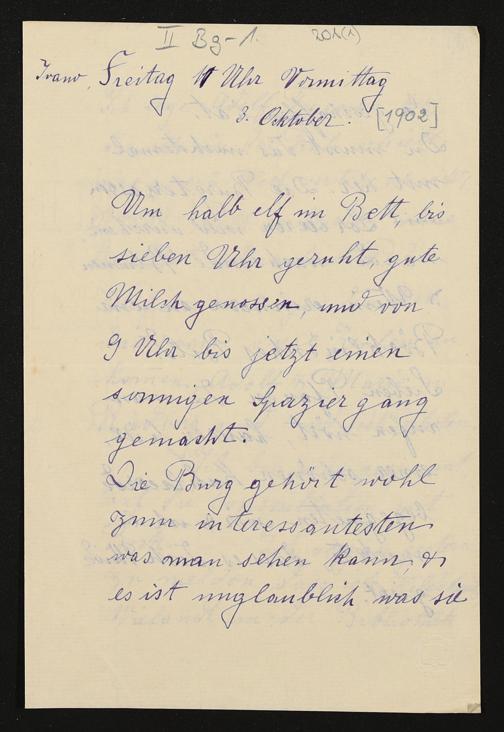 II Bg-1. 201(1)
Ivano, Freitag 11 Uhr Vormittag
3. Oktober. [1902]
Um halb elf im Bett, bis
sieben Uhr geruht, gute
Milch genossen, und von
9 Uhr bis jetzt einen
sonnigen Spaziergang
gemacht.
Die Burg gehört wohl
zum interessantesten
was man sehen kann, &
es ist unglaublich was sie